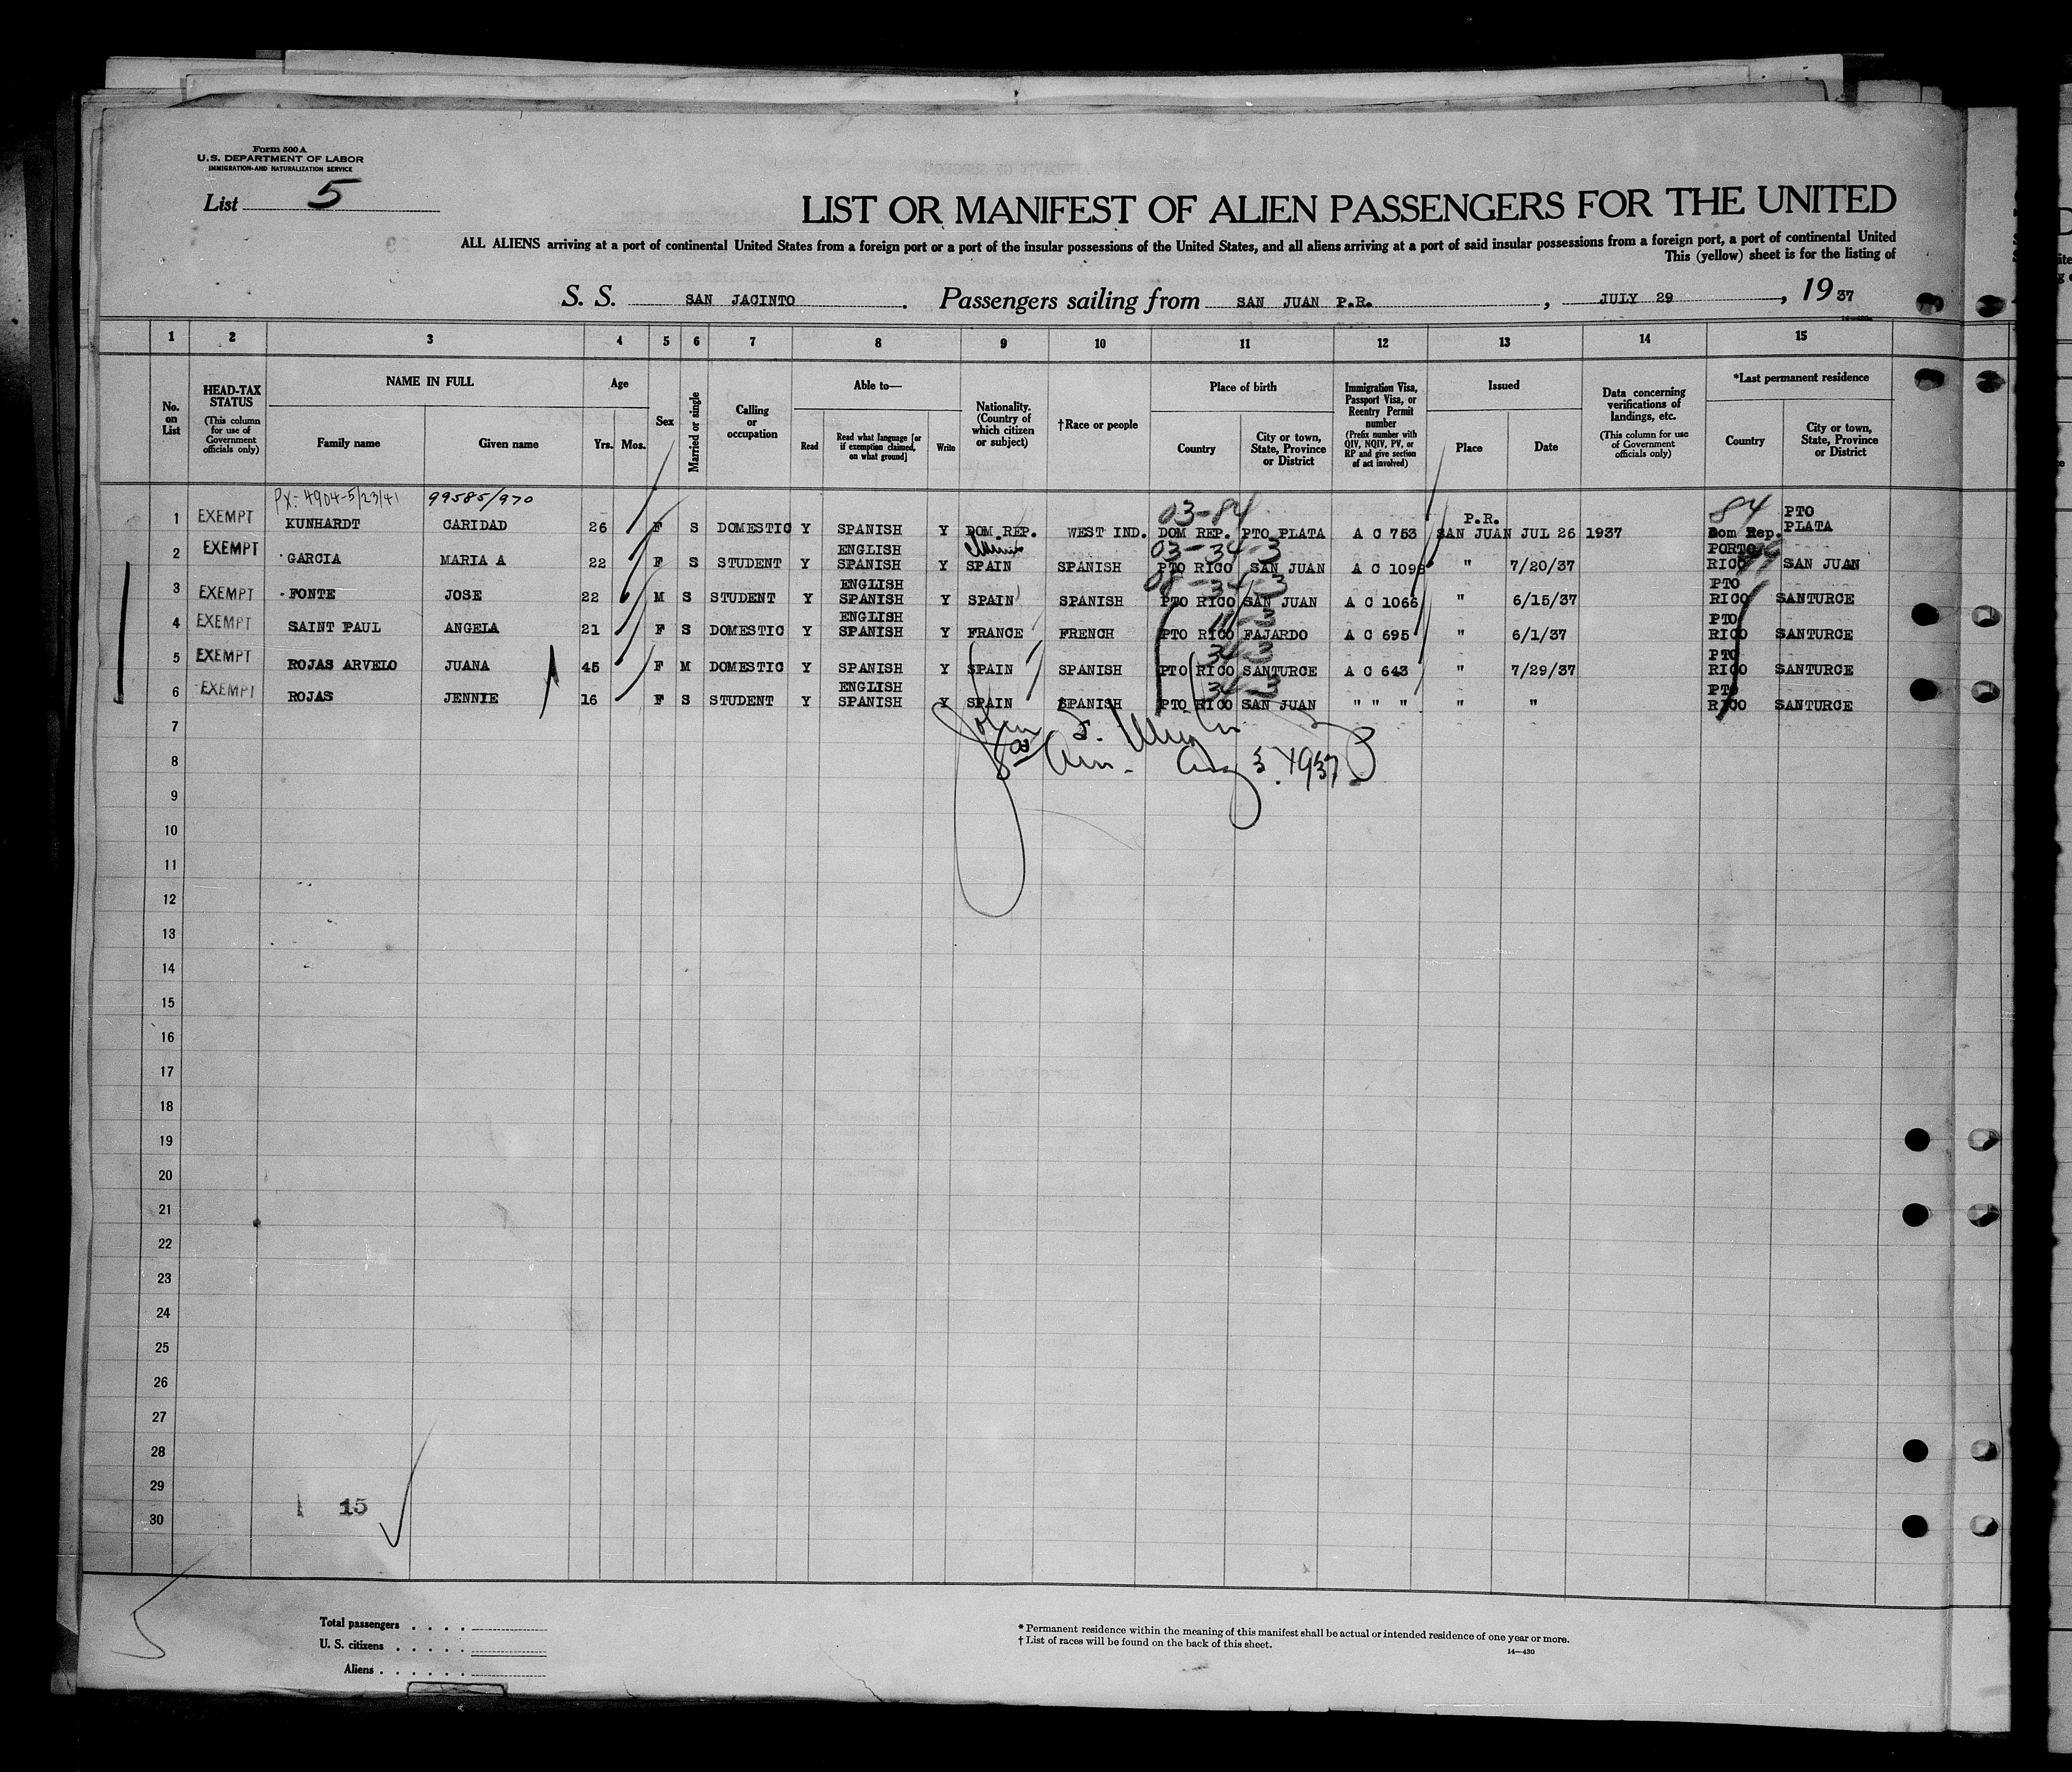 Form 500 A
U. S. DEPARTMENT OF LABOR
IMMIGRATION AND NATURALIZATION SERVICE
List 5
LIST OR MANIFEST OF ALIEN PASSENGERS FOR THE UNITED
ALL ALIENS arriving at a port of continental United States from a foreign port or a port of the insular possessions of the United States, and all aliens arriving at a port of said insular possessions from a foreign port, a port of continental United
This (yellow) sheet is for the listing of
S. S. SAN JACINTO. Passengers sailing from SAN JUAN P.R., JULY 29, 19 37
1 2 3 4 5 6 7 8 9 10 11 12 13 14 15
No. on List
HEAD-TAX STATUS (This column for use of Government officials only)
NAME IN FULL
Family name Given name
Age
Yrs. Mos.
Sex
Married or single
Calling or occupation
Able to—
Read
Read what language [or if exemption claimed, on what ground]
Write
Nationality. (Country of which citizen or subject)
†Race or people
Place of birth
Country
City or town, State, Province or District
Immigration Visa, Passport Visa, or Reentry Permit number (Prefix number with QIV, NQIV, PV, or RP and give section of act involved)
Issued
Place Date
Data concerning verifications of landings, etc. (This column for use of Government officials only)
*Last permanent residence
Country
City or town, State, Province or District
PX-4904-5/23/41 99585/970
03-84 P.R. 84 PTO
1 EXEMPT KUNHARDT CARIDAD 26 F S DOMESTIC Y SPANISH Y DOM REP. WEST IND. DOM REP. PTO PLATA A C 753 SAN JUAN JUL 26 1937 Dom Rep. PLATA
ENGLISH 03-34-3 PORTO
2 EXEMPT GARCIA MARIA A 22 F S STUDENT Y SPANISH Y SPAIN SPANISH PTO RICO SAN JUAN A C 1098 " 7/20/37 RICO SAN JUAN
ENGLISH 08-34-3 PTO
3 EXEMPT FONTE JOSE 22 M S STUDENT Y SPANISH Y SPAIN SPANISH PTO RICO SAN JUAN A C 1066 " 6/15/37 RICO SANTURCE
ENGLISH 11-3 PTO
4 EXEMPT SAINT PAUL ANGELA 21 F S DOMESTIC Y SPANISH Y FRANCE FRENCH PTO RICO FAJARDO A C 695 " 6/1/37 RICO SANTURCE
34-3 PTO
5 EXEMPT ROJAS ARVELO JUANA 45 F M DOMESTIC Y SPANISH Y SPAIN SPANISH PTO RICO SANTURCE A C 643 " 7/29/37 RICO SANTURCE
ENGLISH 34-3 PTO
6 EXEMPT ROJAS JENNIE 16 F S STUDENT Y SPANISH Y SPAIN SPANISH PTO RICO SAN JUAN " " " " " RICO SANTURCE
7
John
8 Aug 3. 1937
9
10
11
12
13
14
15
16
17
18
19
20
21
22
23
24
25
26
27
28
29
15
30
5
Total passengers . . . .
U. S. citizens . . . . .
Aliens . . . . . .
* Permanent residence within the meaning of this manifest shall be actual or intended residence of one year or more.
† List of races will be found on the back of this sheet.
14—430